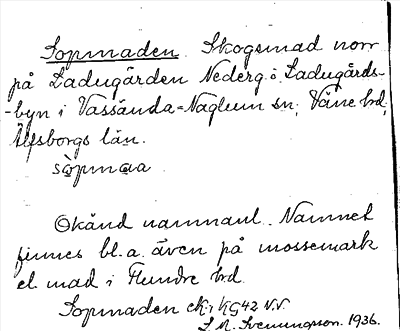 Sopmaden. Skogsmad norr
på Ladugården Nederg. i Ladugårds-
-byn i Vassända-Naglum sn, Väne hd,
Älfsborgs län.
sòpmaa
Okänd namnanl. Namnet
finnes bl.a. även på mossemark
el. mad i Flundre hd.
Sopmaden ek. kG42 N.V.
Svenungson. 1936.